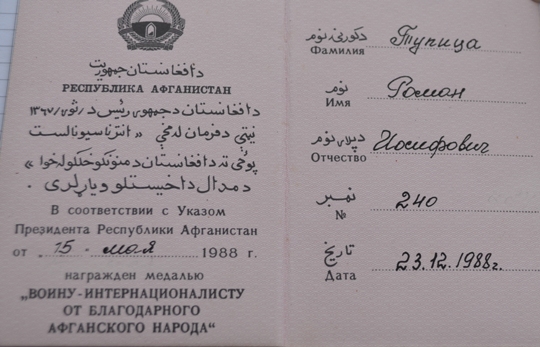 د افغانستان جمهوریت
РЕСПУБЛИКА АФГАНИСТАН
د افغانستان د جمهوری رئیس د ثور/١٣٦٧
نیټې د فرمان له مخې « انترناسیونالست
د مدال د اخیستلو ویاړ لری .
В соответствии с Указом
Президента Республики Афганистан
от 15 - мая 1988 г.
награжден медалью
„ВОИНУ-ИНТЕРНАЦИОНАЛИСТУ
ОТ БЛАГОДАРНОГО
АФГАНСКОГО НАРОДА“
د کورنی نوم
Фамилия Тупица
نوم
Имя Роман
د پلار نوم
Отчество Иосифович
نمبر
№ 240
تاریخ
Дата 23.12.1988г.